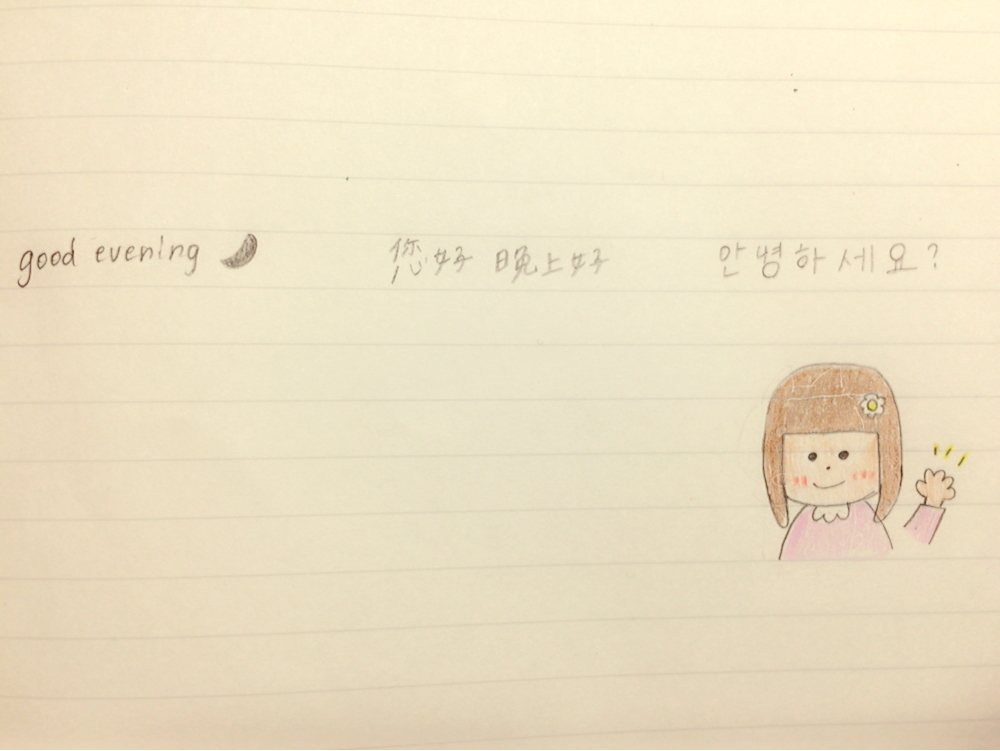 good evening 您好 晚上好 안녕하세요?